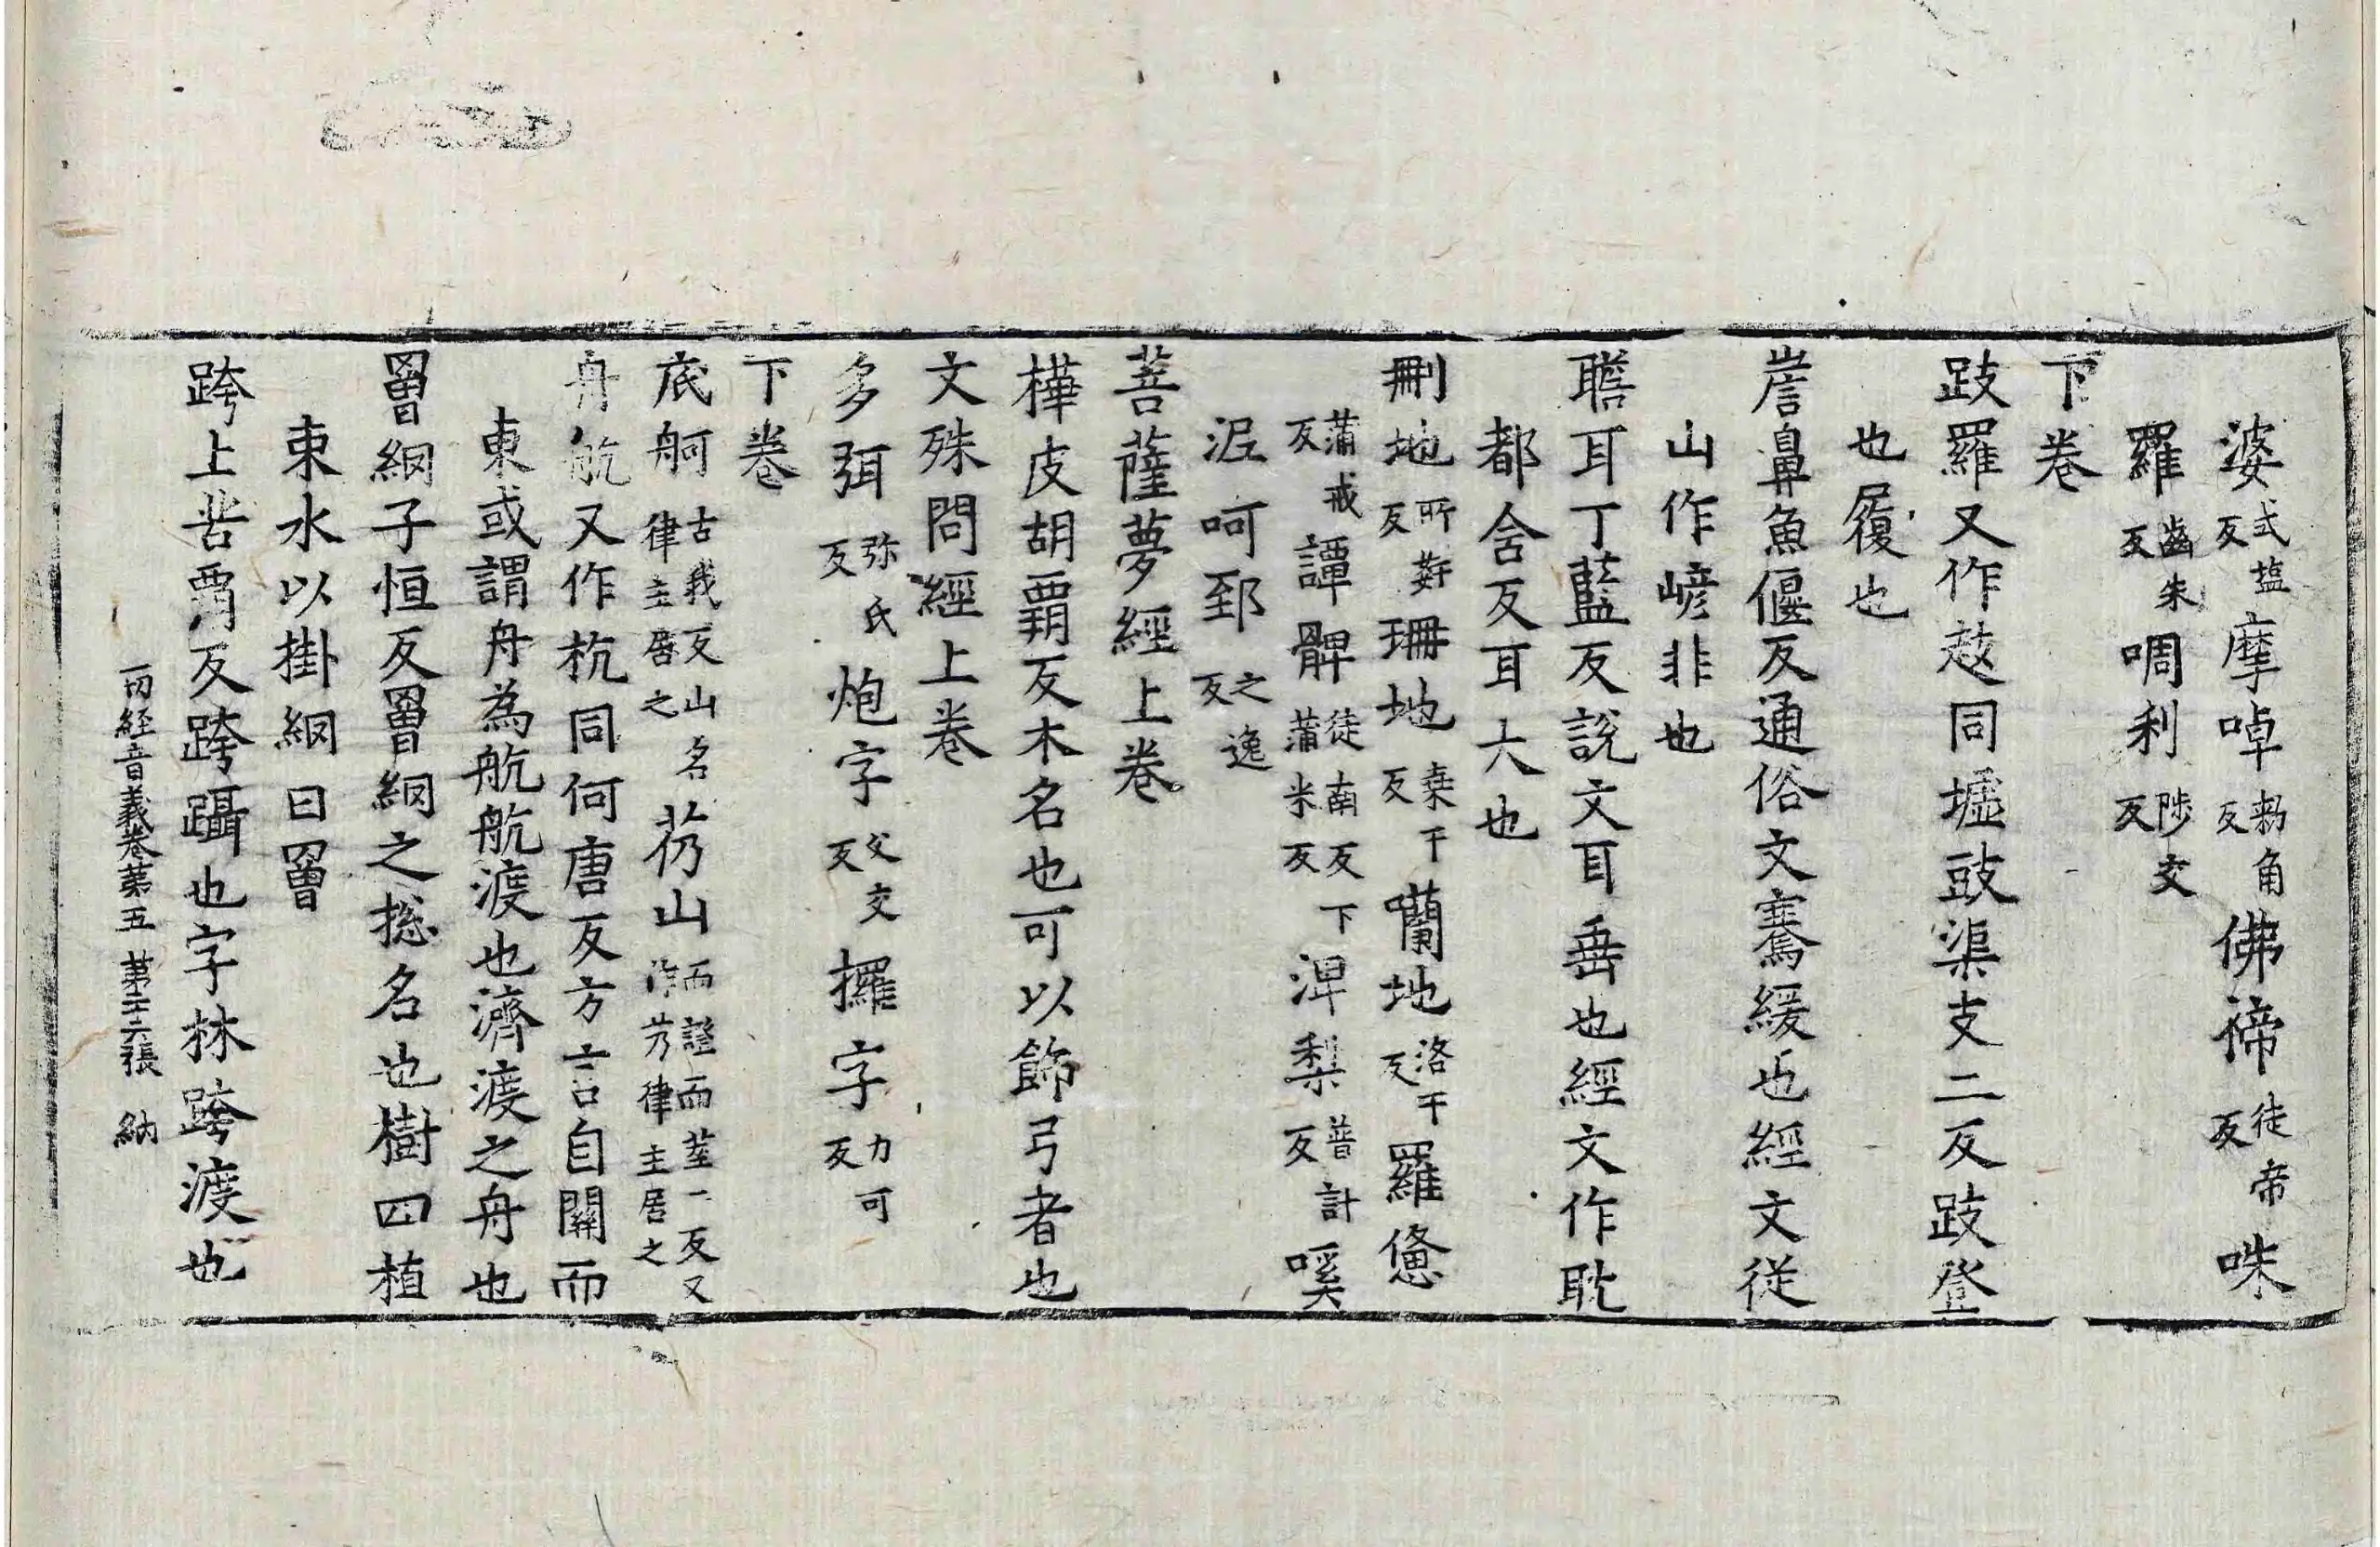 婆式塩反摩啅勑角反佛渧徒帝反咮
羅齒朱反啁利陟交反
下卷
跂羅又作䟚同墟豉渠支二反跂登
也履也
喭鼻魚偃反通俗文騫緩也經文從
山作嵃非也
聸耳丁藍反說文耳垂也經文作耽
都含反耳大也
刪地所姧反珊地桒干反囒地洛干反羅憊
蒲戒反譚髀徒南反下蒲米反渒梨普計反㗨
浘呵郅之逸反
菩薩夢經上卷
樺皮胡霸反木名也可以飾弓者也
文殊問經上卷
多弭弥氏反炮字父交反攞字力可反
下卷
底舸古我反山名律主居之芿山而證而蒸二反又作艿律主居之
舟航又作杭同何唐反方言自關而
東或謂舟為航航渡也濟渡之舟也
罾網子恒反罾網之捴名也樹四植
東水以掛網曰罾
跨上苦賈反跨躡也字林跨渡也
一切経音義卷第五 第二十六張 納